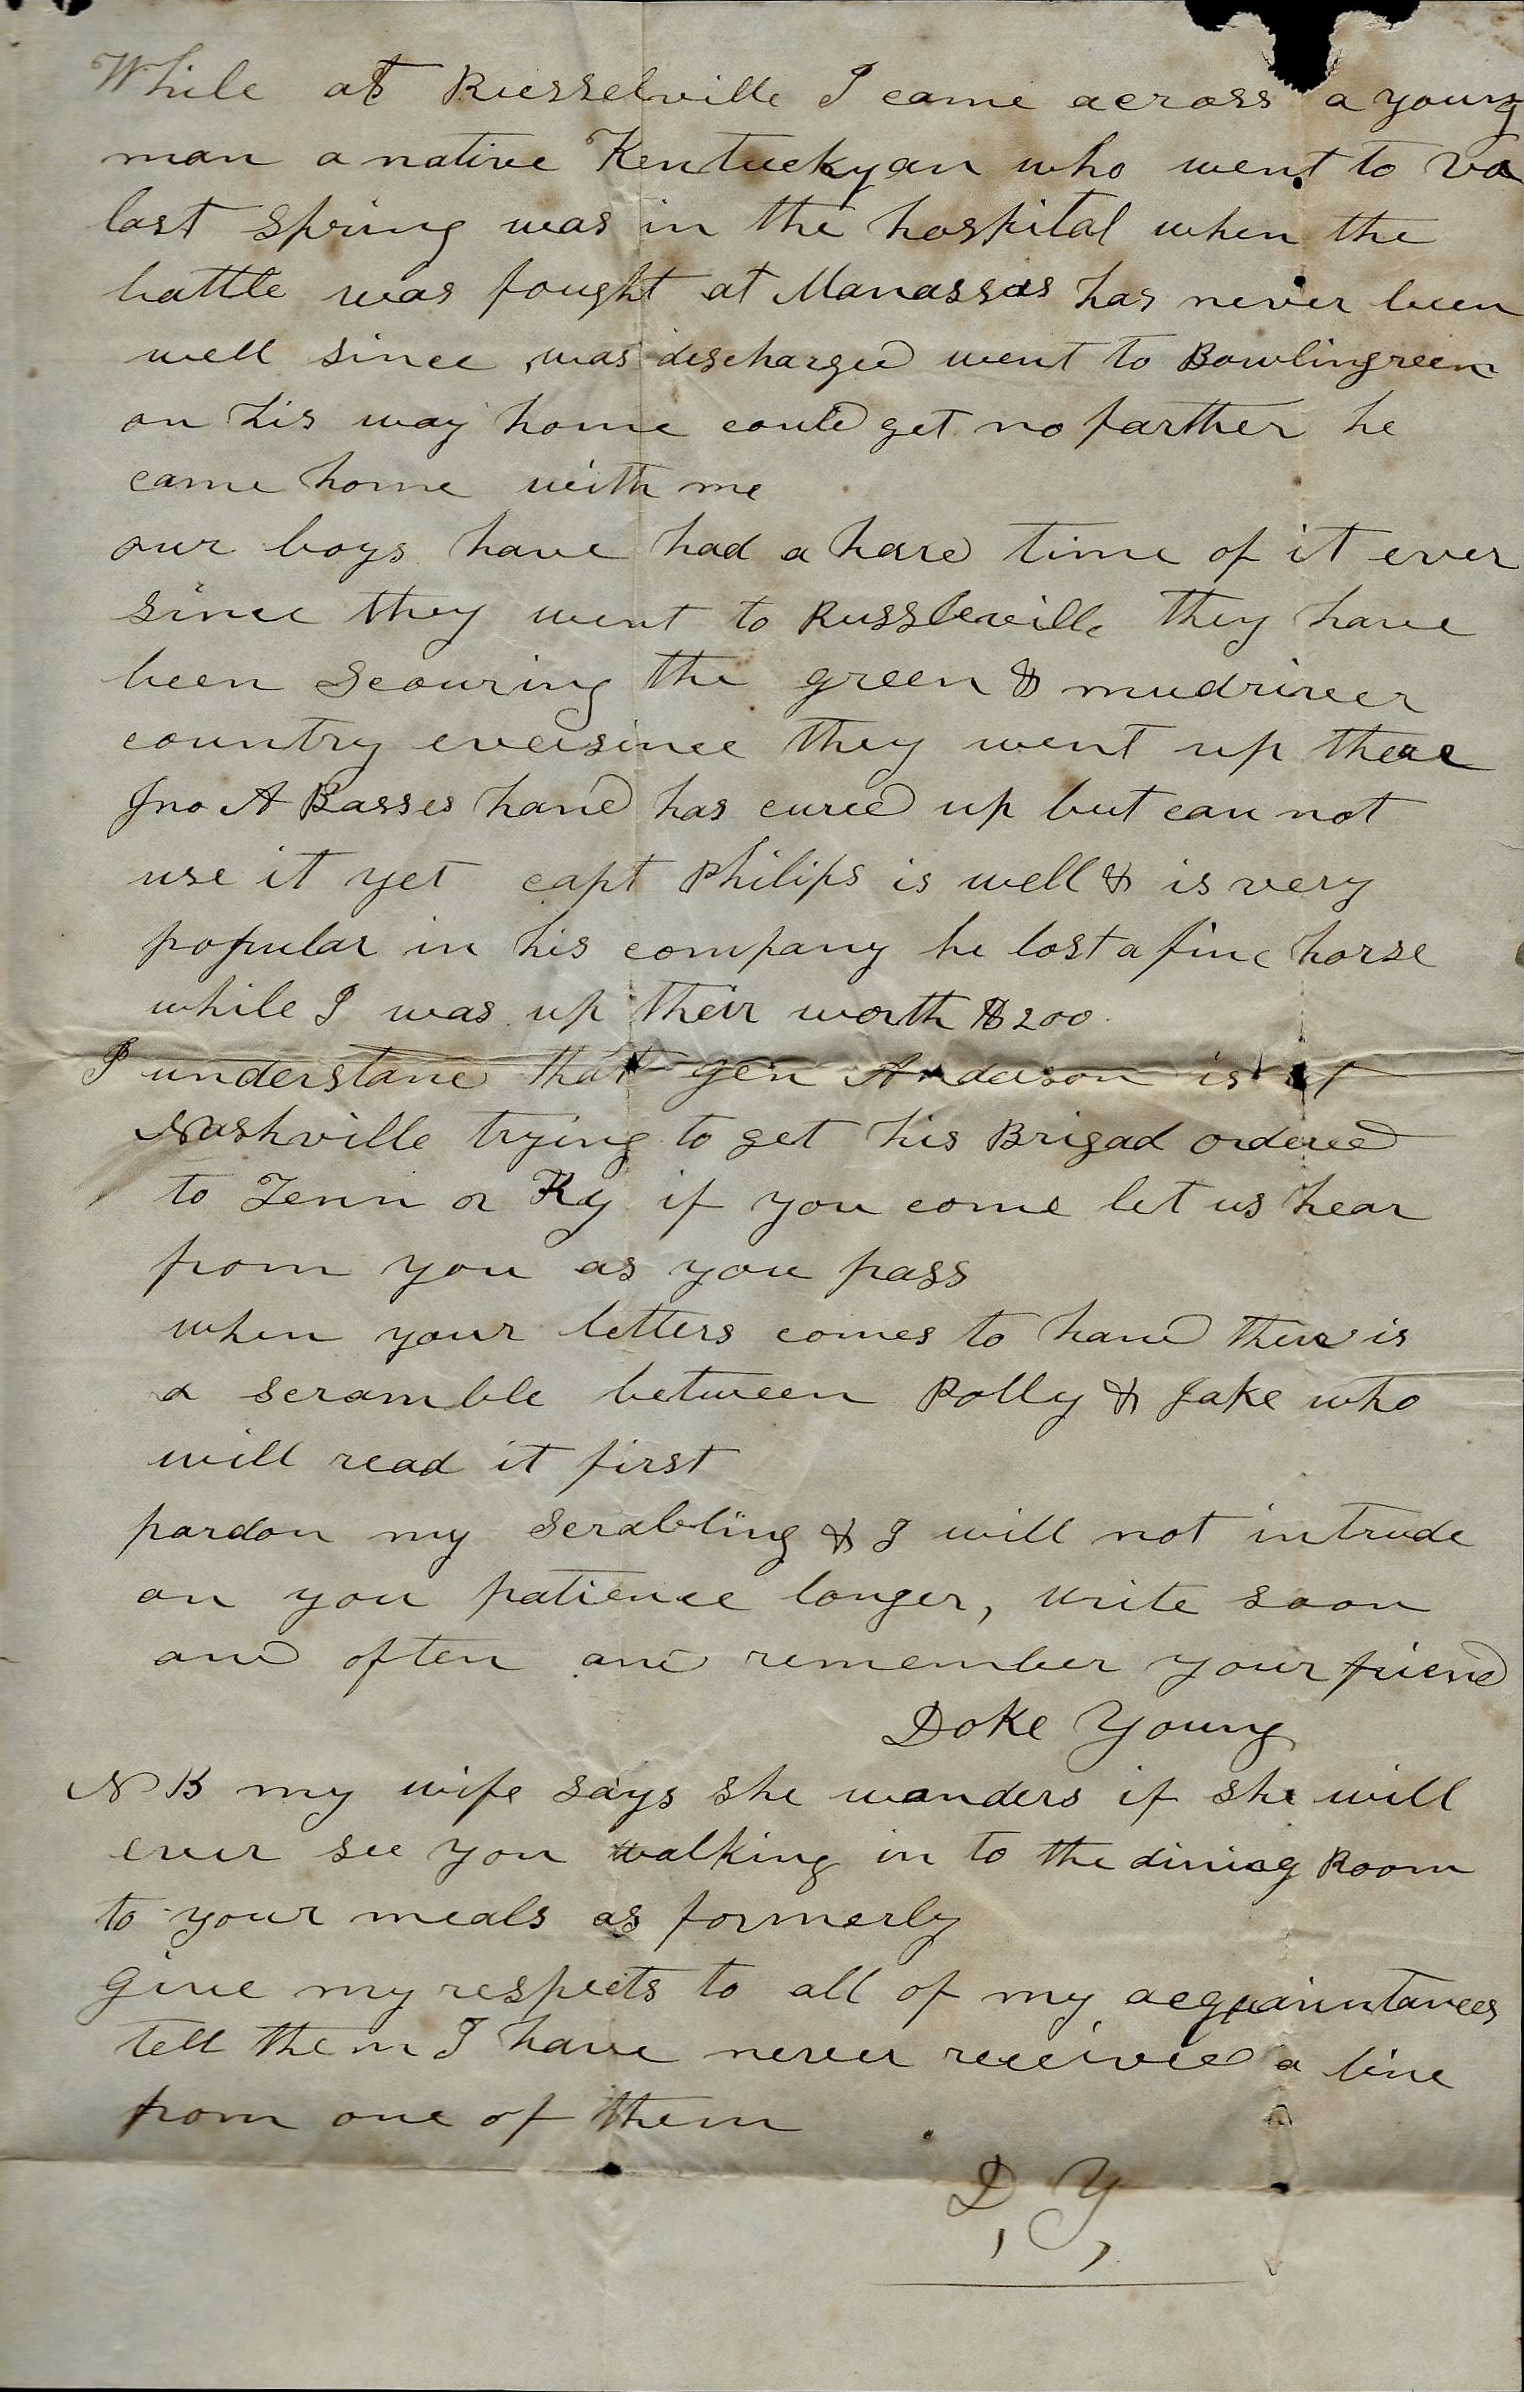 While at Russelville I came across a young
man a native Kentuckyan who went to va
last spring was in the hospital when the
battle was fought at Manassas has never been
well since was discharged went to Bowlingreen
on his way home could get no farther he
came home with me
our boys have had a hard time of it ever
since they went to Russleville they have
been scouring the green & mudriver
country eversince they went up there
Jno A Basses hand has cured up but can not
use it yet capt Philips is well & is very
popular in his company he lost a fine horse
while I was up their worth $200
I understand that gen Anderson is at
Nashville trying to get his Brigad ordered
to Tenn or Ky if you come let us hear
from you as you pass
when your letters comes to hand there is
a scramble between Polly & Jake who
will read it first
pardon my scrabling & I will not intrude
on you patience longer, write soon
and often and remember your friend
Doke Young
N B my wife says she wanders if she will
ever see you walking in to the dining Room
to your meals as formerly
give my respects to all of my acquaintances
tell them I have never received a line
from one of them
D, Y,